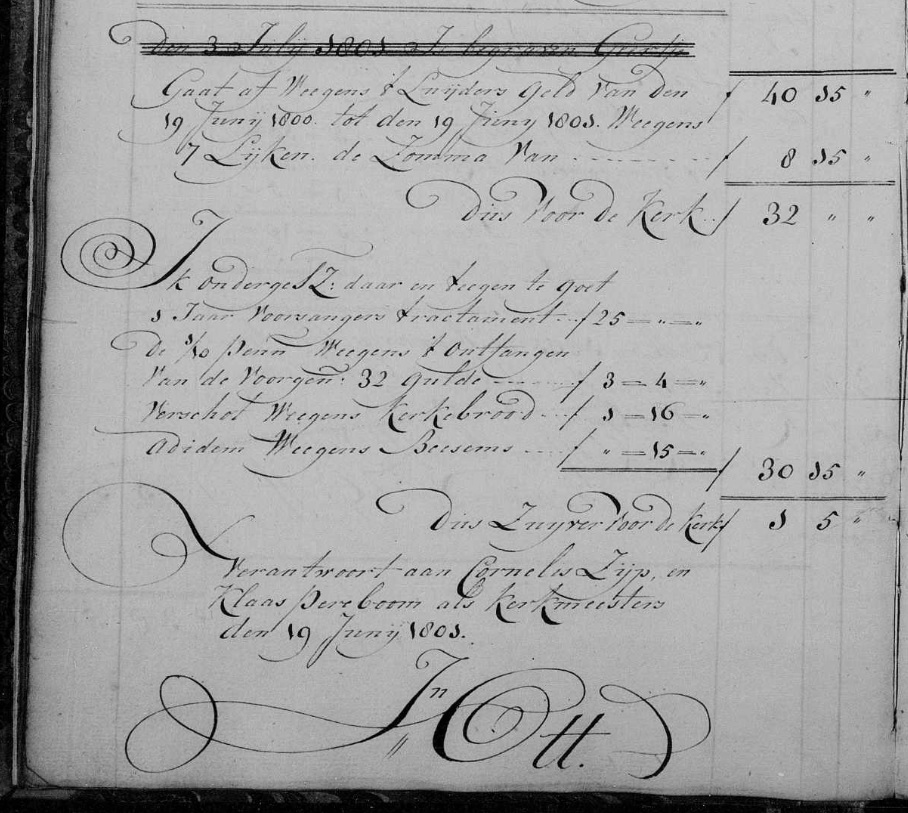 den 3 Julij 1801 I begraven
Gaat af Weegens 't Luijders geld Van den f 40 15 "
19 Junij 1800. tot den 19 Junij 1801. Weegens
7 Lijken. de Zomma Van - - - - - - - f 8 15 "
Dus Voor de Kerk .. f 32 " "
Ik ondergesZ: daar en teegen te goet
1 Jaar Voorsangers tractament - - f 25 = " = "
De 1/10 penn Weegens 't ontfangen
Van de Voorgen: 32 gulde - - - - f 3 = 4 = "
Verschot Weegens Kerkebrood - - f 1 = 16 = "
Adidem Weegens Beesems - - - f " = 15 = "
f 30 15 "
Dus Zuyver Voor de Kerk f 1 5 "
Verantwoort aan Cornelis Zijp, en
Klaas pereboom als Kerkmeesters
den 19 Junij 1801.
Jn Ott.